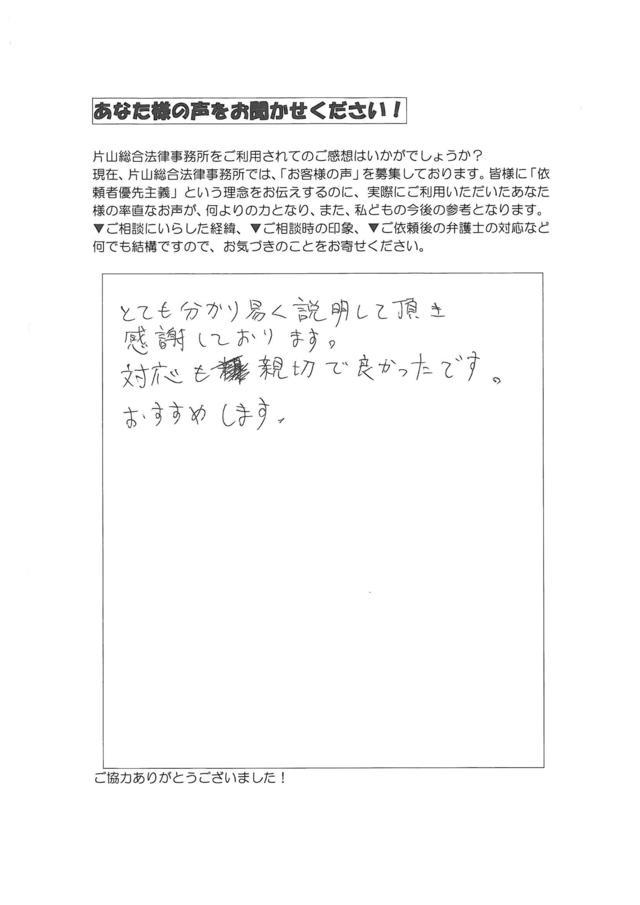 あなた様の声をお聞かせください！
片山総合法律事務所をご利用されてのご感想はいかがでしょうか？
現在、片山総合法律事務所では、「お客様の声」を募集しております。皆様に「依
頼者優先主義」という理念をお伝えするのに、実際にご利用いただいたあなた
様の率直なお声が、何よりの力となり、また、私どもの今後の参考となります。
▼ご相談にいらした経緯、▼ご相談時の印象、▼ご依頼後の弁護士の対応など
何でも結構ですので、お気づきのことをお寄せください。
とても分かり易く説明して頂き
感謝しております。
対応も親切で良かったです。
おすすめします。
ご協力ありがとうございました！